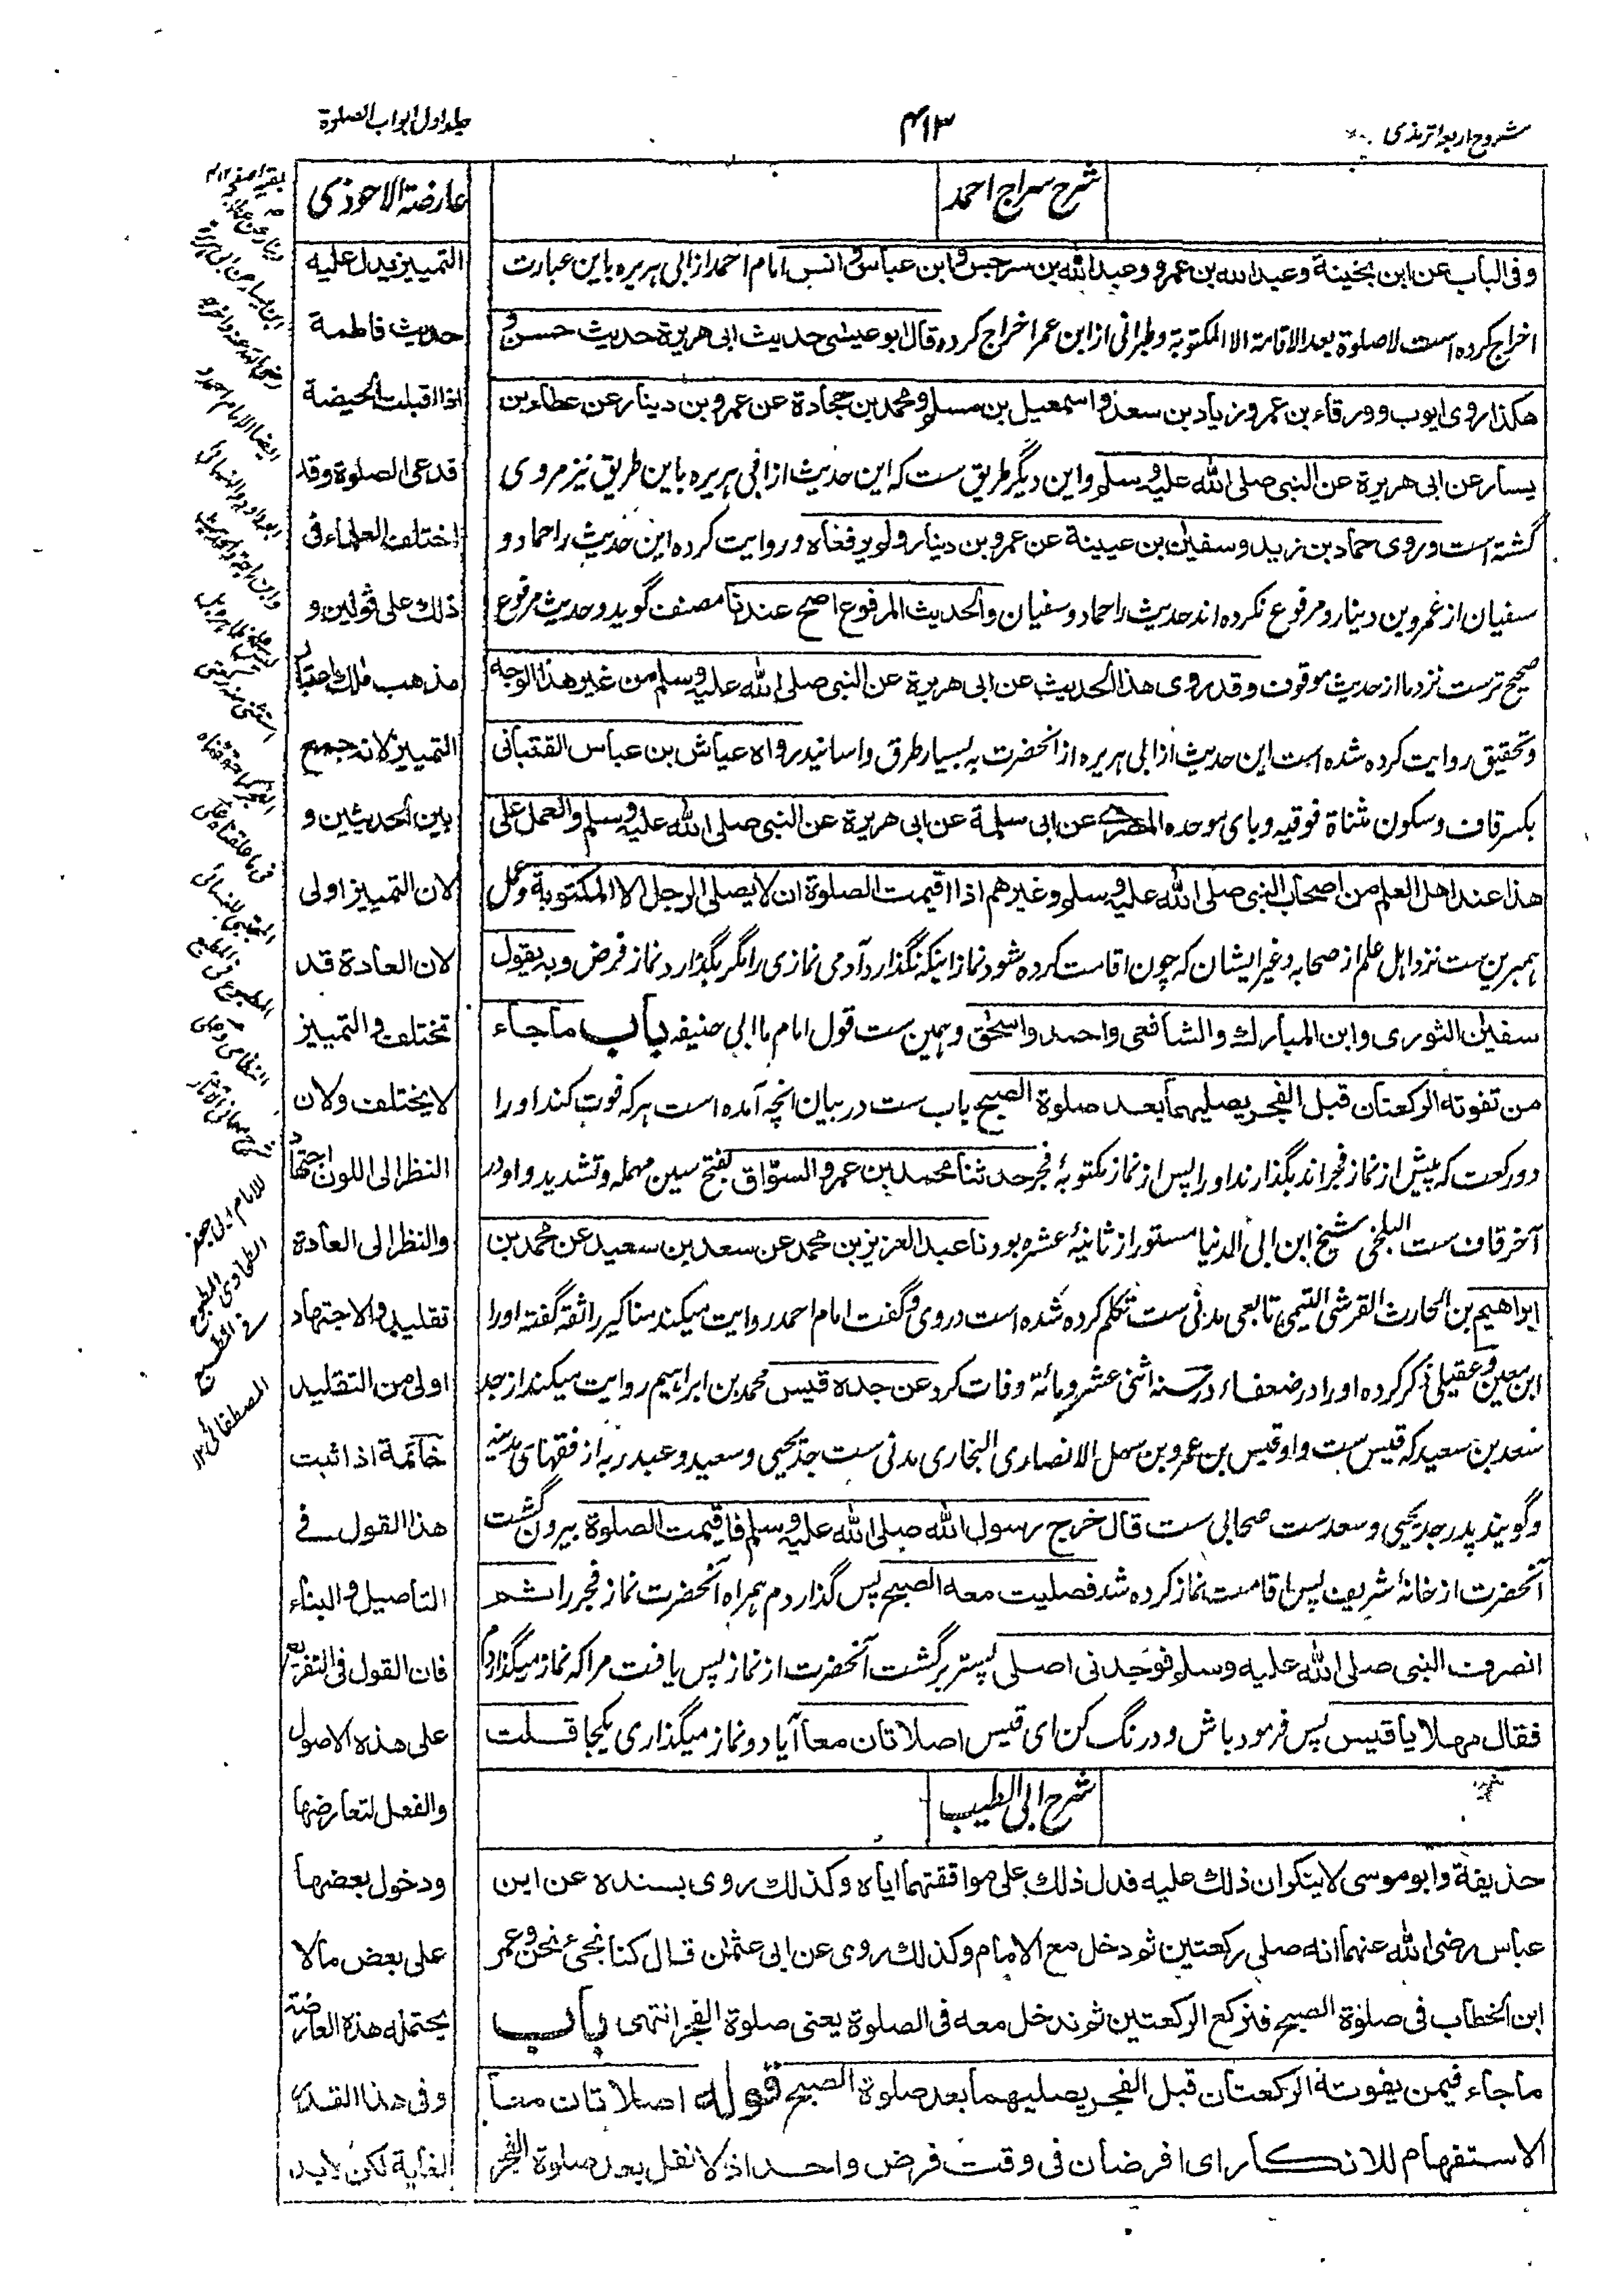 شروح اربعه ترمذی
۴۱۳
جلد اول ابواب الصلوة
شرح سراج احمد
وفی الباب عن ابن بحینة وعبد الله بن عمرو وعبد الله بن سرجس وابن عباس وانس امام احمد از ابی ہریرہ باین عبارت
اخراج کرده است لاصلوة بعد الاقامة الا المکتوبة وطبرانی از ابن عمر اخراج کرده قال ابو عیسٰی حدیث ابی هریرة حدیث حسن و
هکذا روی ایوب وورقاء بن عمر وزیاد بن سعد واسمعیل بن مسلم ومحمد بن جحادة عن عمرو بن دینار عن عطاء بن
یسار عن ابی هریرة عن النبی صلی الله علیه وسلم واین دیگر طریق ست که این حدیث از ابی ہریره باین طریق نیز مروی
گشته است وروی حماد بن زید وسفین بن عیینة عن عمرو بن دینار ولم یرفعاه و روایت کرده این حدیث را حماد و
سفیان از عمرو بن دینار و مرفوع نکرده اند حدیث را حماد و سفیان والحدیث المرفوع اصح عندنا مصنف گوید و حدیث مرفوع
صحیح ترست نزد ما از حدیث موقوف وقد روی هذا الحدیث عن ابی هریرة عن النبی صلی الله علیه وسلم من غیر هذا الوجه
وتحقیق روایت کرده شده است این حدیث از ابی ہریره از آنحضرت به بسیار طرق واسانید رواه عیاش بن عباس القتبانی
بکسر قاف و سکون مثناة فوقیه و بای موحده المصری عن ابی سلمة عن ابی هریرة عن النبی صلی الله علیه وسلم والعمل علی
هذا عند اهل العلم من اصحاب النبی صلی الله علیه وسلم وغیرهم اذا اقیمت الصلوة ان لا یصلی الرجل الا المکتوبة وعمل
ہمبرین ست نزد اہل علم از صحابه و غیر ایشان که چون اقامت کرده شود نماز اینکه نگذارد آدمی نمازی را مگر بگذارد نماز فرض وبه یقول
سفین الثوری وابن المبارك والشافعی واحمد واسحٰق و ہمین ست قول امام ما ابی حنیفه باب ماجاء
من تفوته الرکعتان قبل الفجر یصلیهما بعد صلوة الصبح باب ست در بیان آنچه آمده است ہرکه فوت کند اورا
دو رکعت که پیش از نماز فجر اند بگذارند اورا پس از نماز مکتوبۂ فجر حدثنا محمد بن عمرو السوّاق بفتح سین مهمله و تشدید واو در
آخر قاف ست البلخی شیخ ابن ابی الدنیا مستور از ثانیۂ عشره بود نا عبد العزیز بن محمد عن سعد بن سعید عن محمد بن
ابراهیم بن الحارث القرشی التیمی تابعی مدنی ست تکلم کرده شده است در وی و گفت امام احمد روایت میکند مناکیر را ثقه گفته اورا
ابن معین و عقیلی ذکر کرده اورا در ضعفاء در سنه اثنی عشر و مائة وفات کرد عن جده قیس محمد بن ابراہیم روایت میکند از جد
سعد بن سعید که قیس ست و او قیس بن عمرو بن سهل الانصاری البخاری مدنی ست جد یحیی و سعید و عبد ربه از فقهای مدینه
و گویند پدر جد یحیی و سعد ست صحابی ست قال خرج رسول الله صلی الله علیه وسلم فاقیمت الصلوة بیرون گشت
آنحضرت از خانۂ شریف پس اقامت نماز کرده شد فصلیت معه الصبح پس گذاردم ہمراه آنحضرت نماز فجر را ثم
انصرف النبی صلی الله علیه وسلم فوجدنی اصلی پستر برگشت آنحضرت از نماز پس یافت مرا که نماز میگذاردم
فقال مهلا یا قیس پس فرمود باش و درنگ کن ای قیس اصلاتان معا آیا دو نماز میگذاری یکجا قلت
شرح ابی الطیب
حذیفة وابو موسی لا ینکران ذلك علیه فدل ذلك علی موافقتهما ایاه وکذلك روی بسنده عن ابن
عباس رضی الله عنهما انه صلی رکعتین ثم دخل مع الامام وکذلك روی عن ابی عثمٰن قال کنا نجیٔ نحن وعمر
ابن الخطاب فی صلوة الصبح فنرکع الرکعتین ثم ندخل معه فی الصلوة یعنی صلوة الفجر انتهی باب
ماجاء فیمن یفوته الرکعتان قبل الفجر یصلیهما بعد صلوة الصبح قوله اصلاتان معا
الاستفهام للانکار ای افرضان فی وقت فرض واحد اذ لا نفل بعد صلوة الفجر
عارضة الاحوذی
التمییز یدل علیه
حدیث فاطمة
اذا اقبلت الحیضة
فدعی الصلوة وقد
اختلف العلماء فی
ذلك علی قولین و
مذهب مٰلك اعتبار
التمییز لانه جمع
بین الحدیثین و
لان التمییز اولی
لان العادة قد
تختلف والتمییز
لا یختلف ولان
النظر الی اللون اجتهاد
والنظر الی العادة
تقلید والاجتهاد
اولی من التقلید
خاتمة اذا ثبت
هذا القول فی
التاصیل والبناء
فان القول فی التفریع
علی هذه الاصول
والفعل لتعارضها
ودخول بعضها
علی بعض مالا
یحتمله هذه العارضة
وفی هذا القدر
الغایة لکن لابد
بقیه از صفحه ۴۱۲
رضی الله عنه واخرجه
ایضا الامام احمد
ابوداود والنسائی
للامام ابی جعفر
الطحاوی المطبوع
فی المطبع
المصطفائی ۱۲